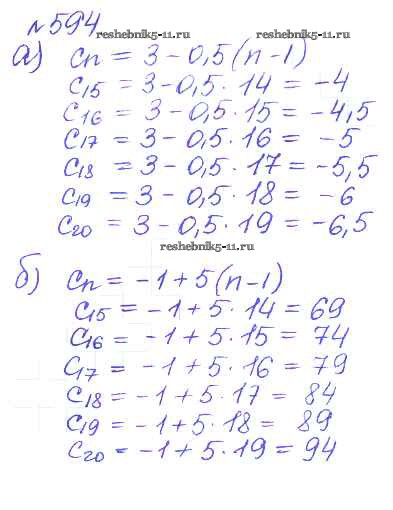 №594
reshebnik5-11.ru reshebnik5-11.ru
а) Cn = 3 - 0,5(n-1)
C15 = 3 - 0,5 · 14 = -4
C16 = 3 - 0,5 · 15 = -4,5
C17 = 3 - 0,5 · 16 = -5
C18 = 3 - 0,5 · 17 = -5,5
C19 = 3 - 0,5 · 18 = -6
C20 = 3 - 0,5 · 19 = -6,5
reshebnik5-11.ru
б) Cn = -1 + 5(n-1)
C15 = -1 + 5 · 14 = 69
C16 = -1 + 5 · 15 = 74
C17 = -1 + 5 · 16 = 79
C18 = -1 + 5 · 17 = 84
C19 = -1 + 5 · 18 = 89
C20 = -1 + 5 · 19 = 94